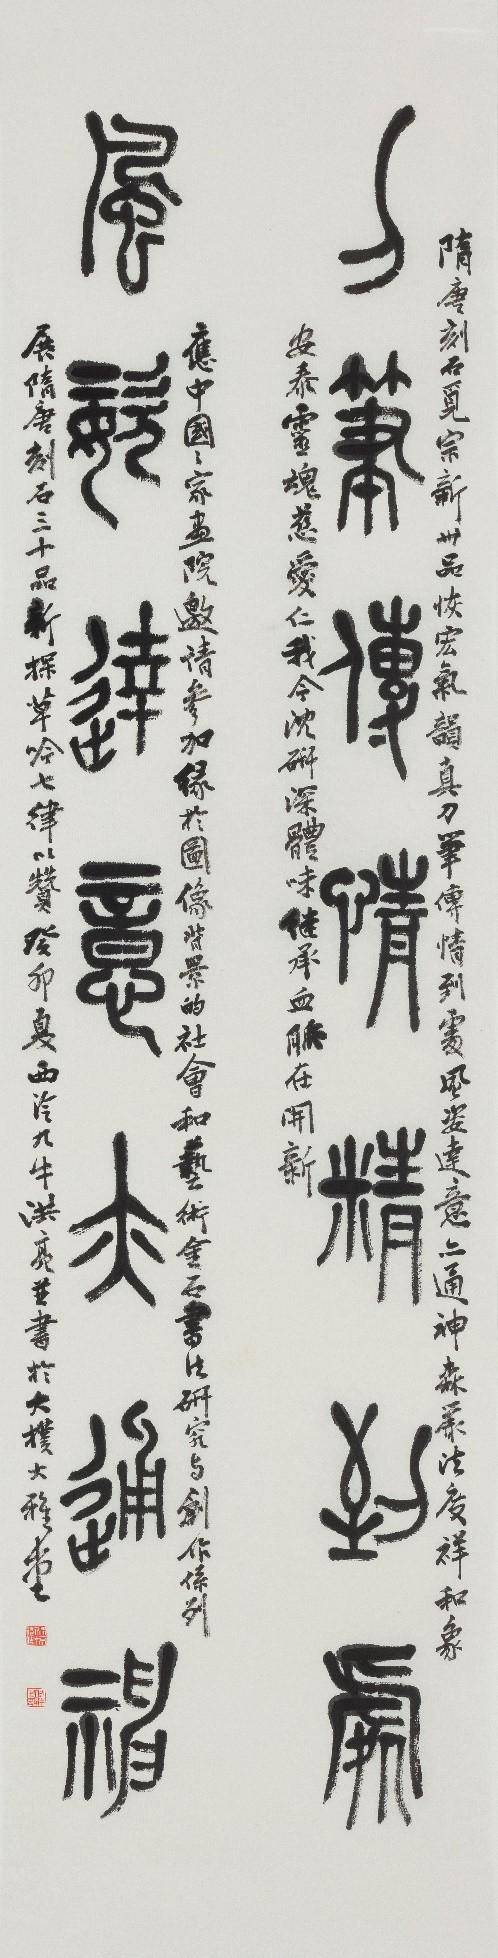 隋唐刻石覓宗新卅品恢宏氣韻真刀筆傳情到處風姿達意亦通神森嚴法度祥和象
刀筆傳情精到處
安泰靈魂慈愛仁我今沈研深體味継承血脈在開新
應中國〻家畫院邀請參加緣於圖像背景的社會和藝術金石書法研究与創作係列
風姿達意亦通神
展隋唐刻石三十品新探草吟七律以贊癸卯夏西泠九牛洪亮并書於大樸大雅堂